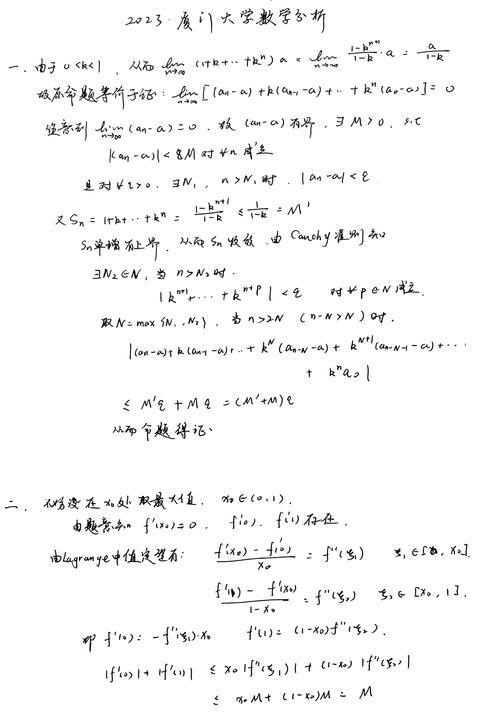 2023·厦门大学数学分析
一、由于 0<k<1，从而 lim_{n→∞} (1+k+…+k^n) a = lim_{n→∞} (1-k^{n+1})/(1-k)·a = a/(1-k)
故原命题等价于证：lim_{n→∞} [(an-a)+k(an-1-a)+…+k^n(a0-a)] = 0
注意到 lim_{n→∞} (an-a)=0，故 (an-a) 有界，∃ M>0，s.t
|an-a| < M 对 ∀n 成立
且对 ∀ε>0，∃N1，n>N1 时，|an-a|<ε
又 Sn = 1+k+…+k^n = (1-k^{n+1})/(1-k) ≤ 1/(1-k) = M'
Sn 单增有上界，从而 Sn 收敛，由 Cauchy 准则知
∃N2∈N，当 n>N2 时.
|k^{n+1}+…+k^{n+p}| < ε 对 ∀p∈N 成立.
取 N=max{N1,N2}，当 n>2N (n-N>N) 时.
|(an-a)+k(an-1-a)+…+k^N(an-N-a)+k^{N+1}(an-N-1-a)+…
+ k^n a0|
≤ M'ε + Mε = (M'+M)ε
从而命题得证.
二、不妨设在 x0 处取最大值，x0∈(0,1).
由题意知 f'(x0)=0，f'(0)，f'(1) 存在.
由Lagrange中值定理有：(f'(x0)-f'(0))/x0 = f''(ξ1) ξ1∈[0,x0].
(f'(1)-f'(x0))/(1-x0) = f''(ξ2) ξ2∈[x0,1].
即 f'(0)=-f''(ξ1)·x0 f'(1)=(1-x0)f''(ξ2).
|f'(0)|+|f'(1)| ≤ x0|f''(ξ1)|+(1-x0)|f''(ξ2)|
≤ x0M+(1-x0)M = M